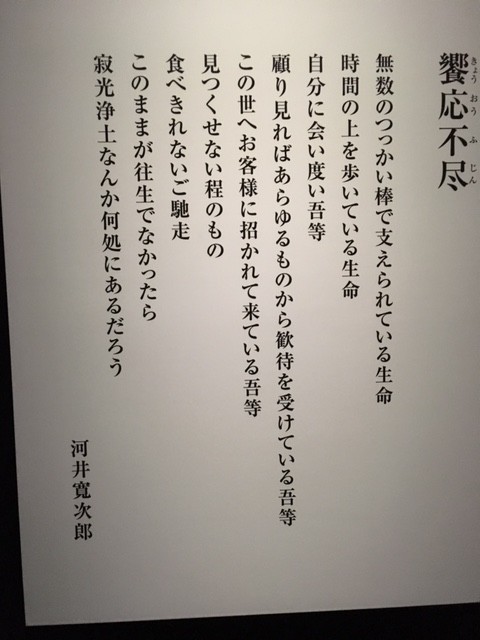 饗応不尽
きょうおうふじん
無数のつっかい棒で支えられている生命
時間の上を歩いている生命
自分に会い度い吾等
顧り見ればあらゆるものから歓待を受けている吾等
この世へお客様に招かれて来ている吾等
見つくせない程のもの
食べきれないご馳走
このままが往生でなかったら
寂光浄土なんか何処にあるだろう
河井寛次郎